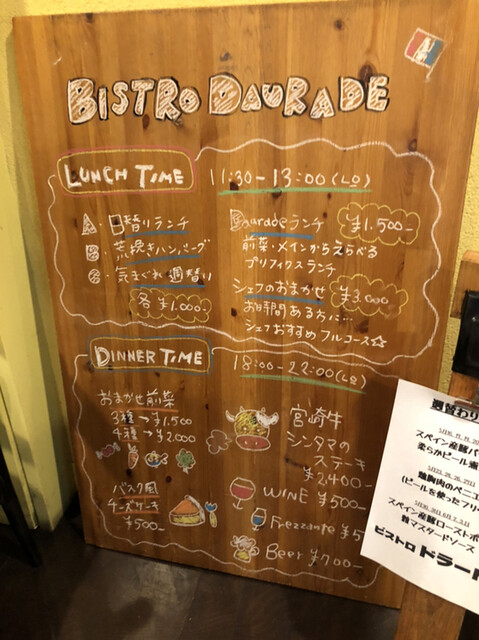 BISTRO DAURADE
LUNCH TIME 11:30-13:00(LO)
A・日替りランチ
B・荒挽きハンバーグ
C・気まぐれ週替り
各¥1.000-
Dauradeランチ ¥1.500-
前菜・メインからえらべる
プリフィクスランチ
シェフのおまかせ ¥3.000
お時間ある方に…
シェフおすすめフルコース☆
DINNER TIME 18:00-22:00(LO)
おまかせ前菜
3種→¥1,500
4種→¥2,000
バスク風
チーズケーキ
¥500-
宮崎牛
シンタマの
ステーキ
¥2.400-
WINE ¥500-
Frezzante ¥5
Beer ¥700-
週替わり
スペイン産豚バ
柔らかビール煮
鶏胸肉のベニエ
(ビールを使ったフリ
スペイン産豚ローストポ
粒マスタードソース
ビストロ ドラード